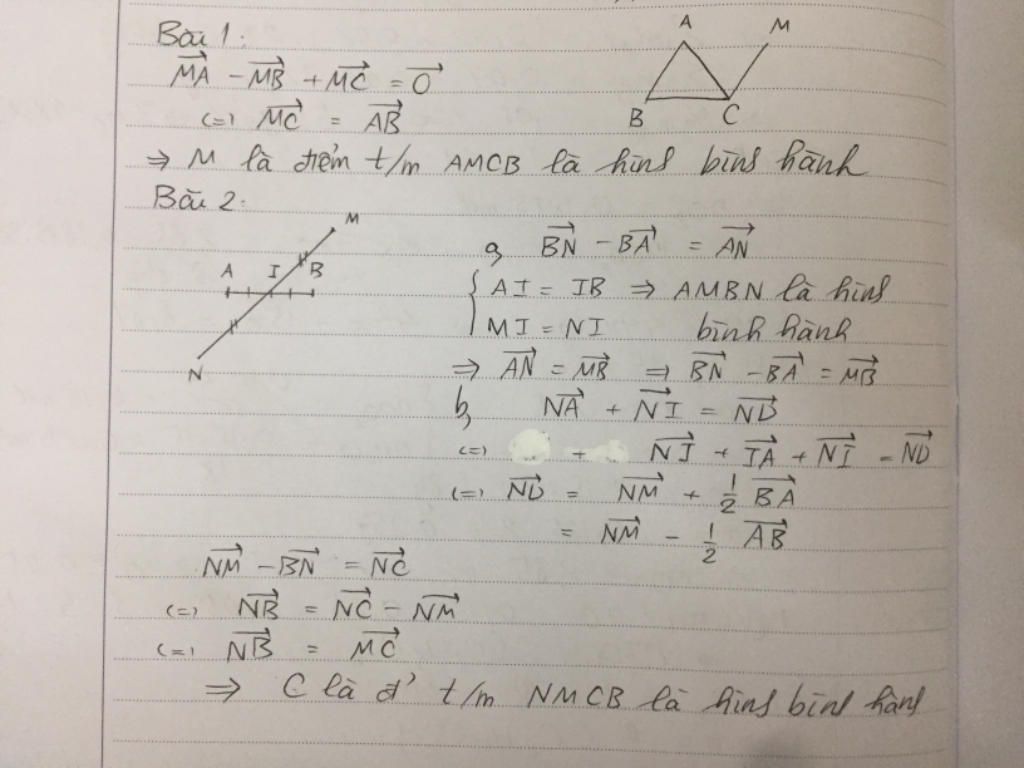 Bài 1:
A M
B C
$\overrightarrow{MA} - \overrightarrow{MB} + \overrightarrow{MC} = \overrightarrow{0}$
(=) $\overrightarrow{MC} = \overrightarrow{AB}$
⇒ M là điểm t/m AMCB là hình bình hành
Bài 2:
M
A I B
N
a, $\overrightarrow{BN} - \overrightarrow{BA} = \overrightarrow{AN}$
{ AI = IB ⇒ AMBN là hình
MI = NI bình hành
⇒ $\overrightarrow{AN} = \overrightarrow{MB}$ ⇒ $\overrightarrow{BN} - \overrightarrow{BA} = \overrightarrow{MB}$
b, $\overrightarrow{NA} + \overrightarrow{NI} = \overrightarrow{ND}$
(=) + $\overrightarrow{NI} + \overrightarrow{IA} + \overrightarrow{NI} = \overrightarrow{ND}$
(=) $\overrightarrow{ND} = \overrightarrow{NM} + \frac{1}{2} \overrightarrow{BA}$
= $\overrightarrow{NM} - \frac{1}{2} \overrightarrow{AB}$
$\overrightarrow{NM} - \overrightarrow{BN} = \overrightarrow{NC}$
(=) $\overrightarrow{NB} = \overrightarrow{NC} - \overrightarrow{NM}$
(=) $\overrightarrow{NB} = \overrightarrow{MC}$
⇒ C là đ' t/m NMCB là hình bình hành